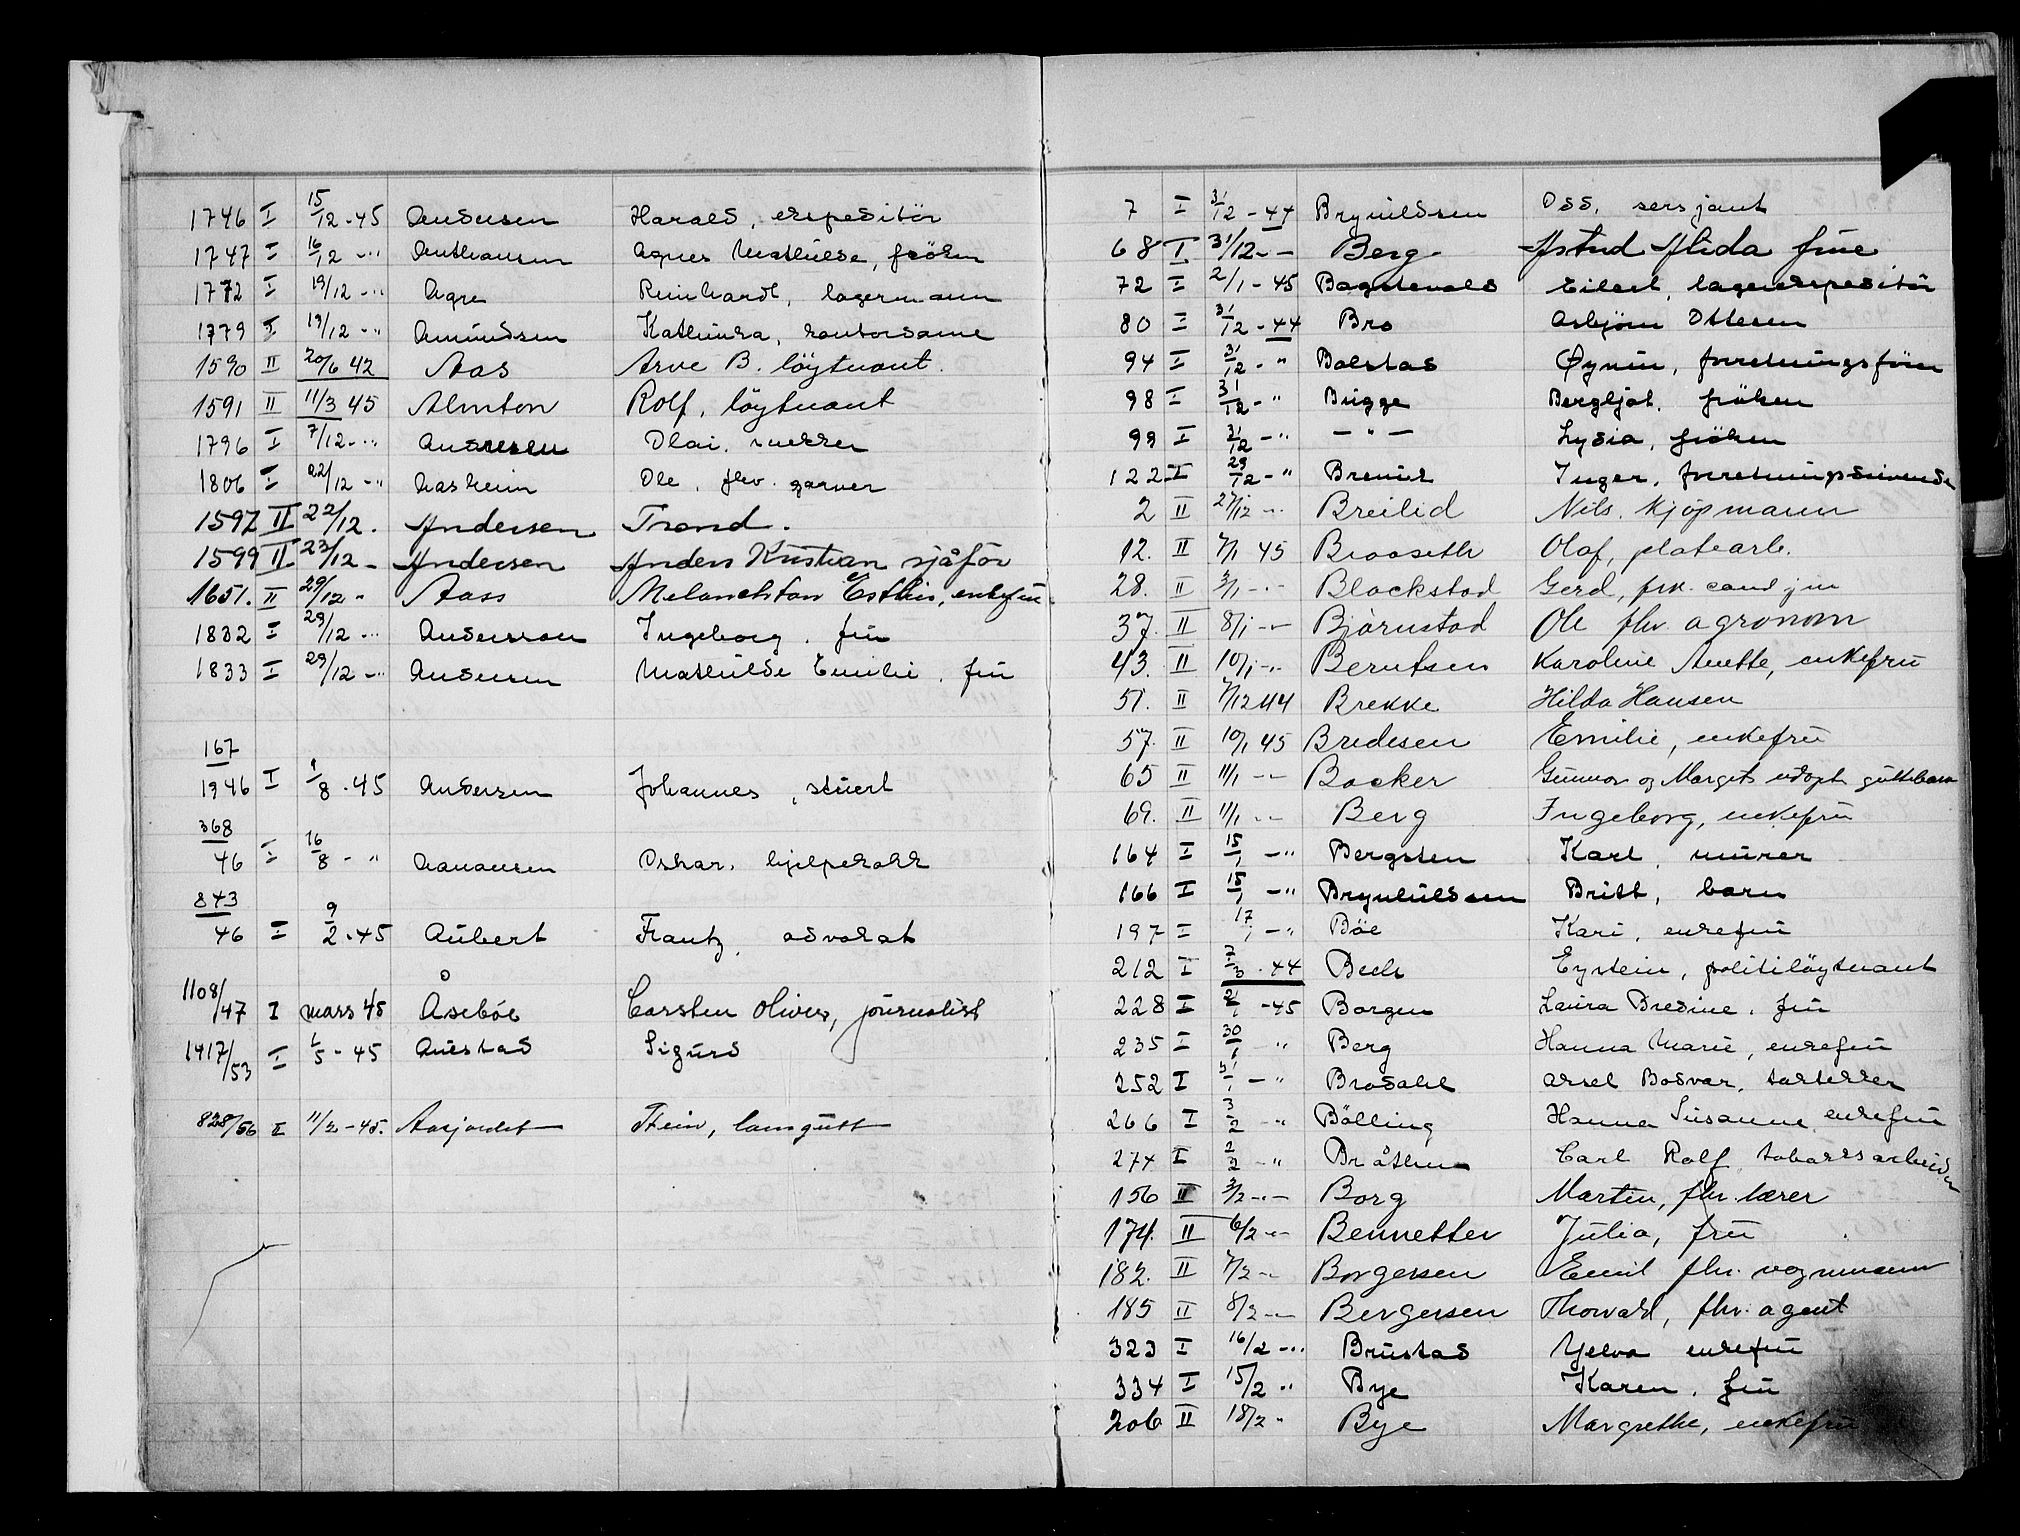 1746 I 15/12-45 Andersen Harald, ekspeditör
1747 I 16/12 -"- Anthonsen Agnes Mathilde, fröken
1772 I 19/12 -"- Agre Reinhardt, lagermann
1779 I 19/12 -"- Amundsen Kathinka, kontordame
1590 II 20/6 42 Aas Arve B. löytnant.
1591 II 11/3 45 Almton Rolf, löytnant
1796 I 7/12 -"- Andresen Olai, snekker
1806 I 22/12 -"- Aasheim Ole, fhv. garver
1597 II 22/12. Andersen Trond.
1599 II 23/12 - Andersen Anders Kristian sjåför
1651. II 29/12 - Aass Melanchton enkefru
1832 I 29/12 -"- Andersson Ingeborg, fru
1833 I 29/12 -"- Andersen Mathilde Emilie, fru
167/1946 I 1/8-45 Andersen Johannes, stuert
368/46 I 16/8 - " Aanansen Oskar, hjelpekokk
843/46 I 9/2-45 Aubert Frantz, advokat
1108/47 I mars 45 Åseböe Carsten Oliver, journalist
1417/53 I 1/5-45 Austad Sigurd
828/56 II 11/2-45. Aasjordet Stein,
7 I 31/12-44 Brynildsen Odd, sersjant
68 I 31/12 - - Berg Astrid Alida frue
72 I 2/1-45 Bogstevold Eilert, lagerekspeditör
80 I 31/12-44 Bro Asbjörn Ottesen
94 I 31/12 - " Bolstad Øyvin, forretningsförer
98 I 31/12 - " Bugge Bergljot, fröken
99 I 31/12 - " — " — Lydia, fröken
122 I 29/12 - " Inger, forretningsdrivende
2 II 27/12 -"- Breilid Nils, kjöpmann
12. II 7/1 45 Braaseth Olaf, platearb.
28. II 3/1 - - Blackstad Gerd, frk. cand jur
37. II 8/1 - - Bjørnstad Ole fhv. agronom
43. II 10/1 - - Berntsen Karoline Anette, enkefru
51. II 7/12 44 Brekke Hilda Hansen
57. II 10/1 45 Bredesen Emilie, enkefru
65 II 11/1 - - Backer Gunnor og Margits udöpt guttebarn
69. II 11/1 - - Berg Ingeborg, enkefru
164 I 15/1 - " Bergsten Karl, murer
166 I 15/1 - " Brynhildsen Britt, barn
197 I 17/1 - " Böe Kari, enkefru
212 I 7/3-44 Bech Eystein, politilöytnant
228 I 21/1-45 Borgen Laura Bredine, fru
235 I 30/1 " Berg Hanna Marie, enkefru
252 I 31/1 - " Brodahl Aksel Bodvar, taktekker
266 I 3/2 - " Bölling Hanna Susanne, enkefru
274 I 2/2 - " Bråthen Carl Rolf, tobakksarbeider
156 II 3/2 - - Borg Martin, fhv. lærer
174. II 6/2 - - Bennetter Julia, fru
182. II 7/2 - Borgersen Emil fhv. vognmann
185 II 8/2 - - Bergersen Thorvald, fhv. agent
323 I 16/2 -"- Brustad Yelva enkefru
334 I 15/2 " Bye Karen, fru
206 II 18/2 " Bye Margrethe, enkefru